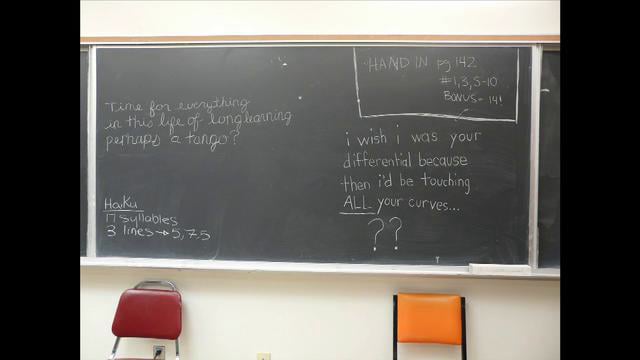 Time for everything
in this life of longlearning
perhaps a tango?
Haiku
17 syllables
3 lines → 5,7,5
HAND IN pg 142
#1,3,5-10
BONUS = 14!
i wish i was your
differential because
then i'd be touching
ALL your curves...
??